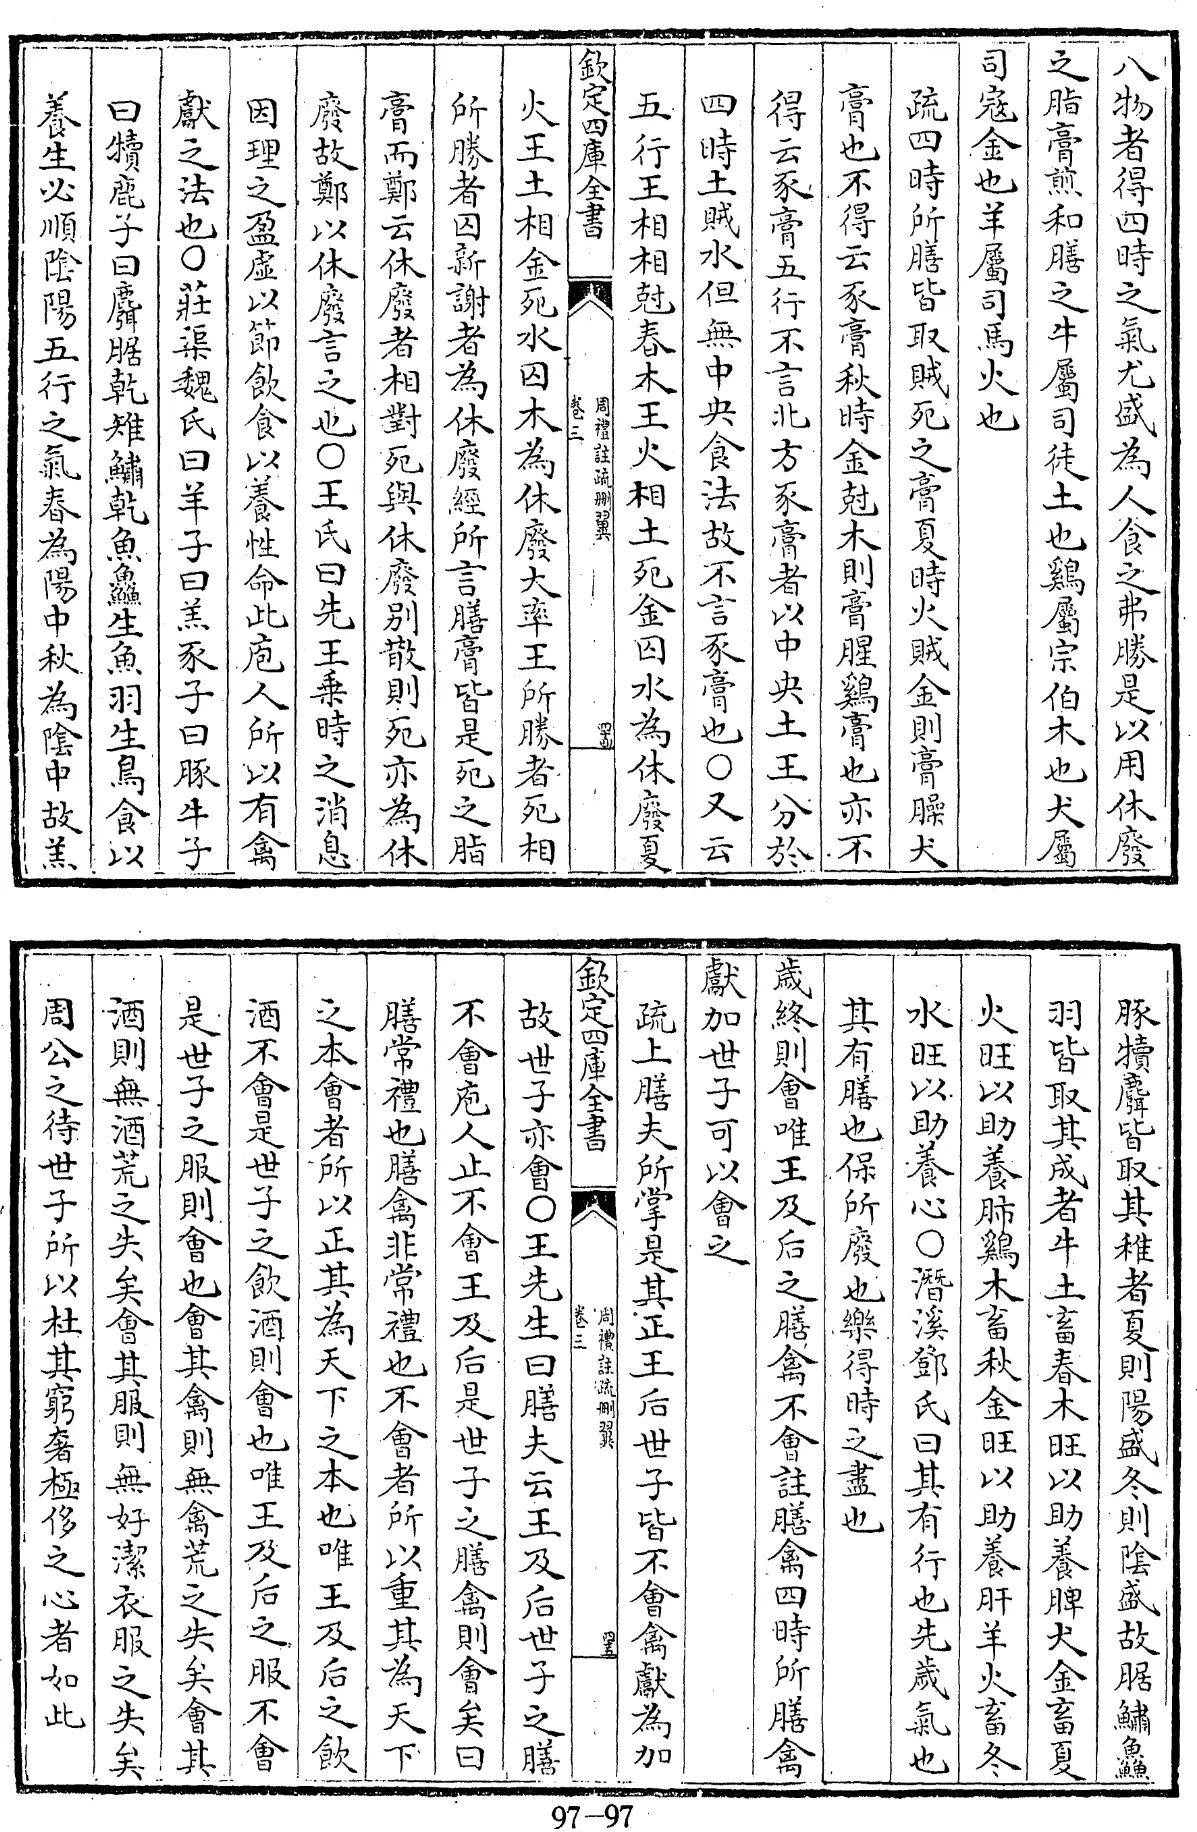 八物者得四時之氣尤盛為人食之弗勝是以用休廢
之脂膏煎和膳之牛屬司徒土也鷄屬宗伯木也犬屬
司寇金也羊屬司馬火也
疏四時所膳皆取賊死之膏夏時火賊金則膏臊犬
膏也不得云豕膏秋時金尅木則膏腥鷄膏也亦不
得云豕膏五行不言北方豕膏者以中央土王分於
四時土賊水但無中央食法故不言豕膏也〇又云
五行王相相尅春木王火相土死金囚水為休廢夏
欽定四庫全書
周禮註疏刪翼
卷三
火王土相金死水囚木為休廢大率王所勝者死相
所勝者囚新謝者為休廢經所言膳膏皆是死之脂
膏而鄭云休廢者相對死與休廢别散則死亦為休
廢故鄭以休廢言之也〇王氏曰先王乗時之消息
因理之盈虛以節飲食以養性命此庖人所以有禽
獻之法也〇莊渠魏氏曰羊子曰羔豕子曰豚牛子
曰犢鹿子曰麛腒乾雉鱐乾魚鱻生魚羽生鳥食以
養生必順陰陽五行之氣春為陽中秋為陰中故羔
豚犢麛皆取其稚者夏則陽盛冬則陰盛故腒鱐鱻
羽皆取其成者牛土畜春木旺以助養脾犬金畜夏
火旺以助養肺鷄木畜秋金旺以助養肝羊火畜冬
水旺以助養心〇潛溪鄧氏曰其有行也先歲氣也
其有膳也保所廢也樂得時之盡也
歲終則會唯王及后之膳禽不會註膳禽四時所膳禽
獻加世子可以會之
疏上膳夫所掌是其正王后世子皆不會禽獻為加
欽定四庫全書
周禮註疏刪翼
卷三
故世子亦會〇王先生曰膳夫云王及后世子之膳
不會庖人止不會王及后是世子之膳禽則會矣曰
膳常禮也膳禽非常禮也不會者所以重其為天下
之本會者所以正其為天下之本也唯王及后之飲
酒不會是世子之飲酒則會也唯王及后之服不會
是世子之服則會也會其禽則無禽荒之失矣會其
酒則無酒荒之失矣會其服則無好潔衣服之失矣
周公之待世子所以杜其窮奢極侈之心者如此
97-97